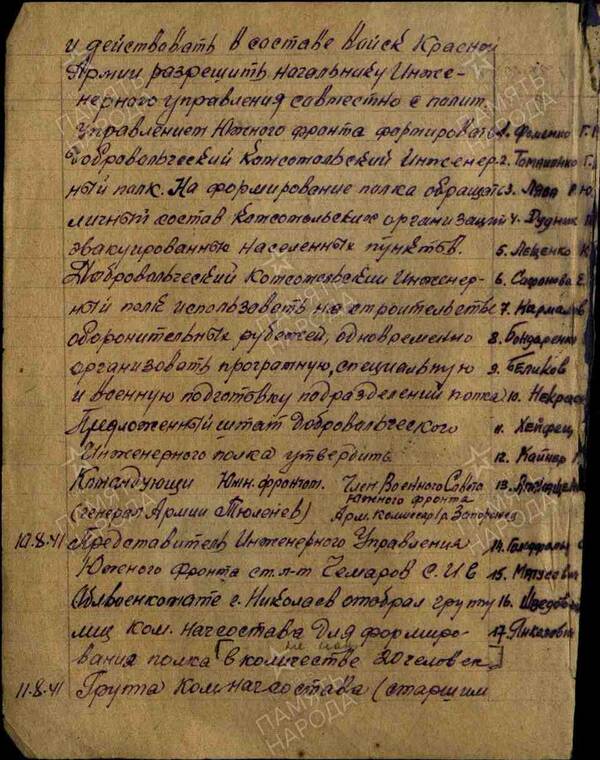 и действовать в составе войск Красной
Армии разрешить начальнику Инже-
нерного управления совместно с полит.
управлением Южного фронта формировать
Добровольческий Комсомольский Инженер-
ный полк. На формирование полка обращать
личный состав комсомольских организаций
эвакуированных населенных пунктов.
Добровольческий Комсомольский Инженер-
ный полк использовать на строительстве
оборонительных рубежей, одновременно
организовать програмную, специальную
и военную подготовку подразделений полка
Предложенный штат Добровольческого
Инженерного полка утвердить
Командующи Южн. фронтом. Член Военного Совета
Южного фронта
(генерал Армии Тюленев) Арм. комиссар 1 р. Запорожец
10.8.41 Представитель Инженерного Управления
Южного фронта ст. л-т Чемаров С. И в
Облвоенкомате г. Николаев отобрал группу
лиц ком. начсостава для формиро-
вания полка [в количестве 20 человек]
11.8.41 Группа комначсостава (старшим
1. Фоменко Г.
2. Г.
3.
4. Дудник
5. Лещенко К
6. Сафонова Е.
7.
8. Бондаренко
9. Беликов
10. Некрас
11. Хейфец
12.
13.
14.
15. Матусевич
16.
17.
ПАМЯТЬ НАРОДА
ПАМЯТЬ НАРОДА
ПАМЯТЬ НАРОДА
ПАМЯТЬ НАРОДА